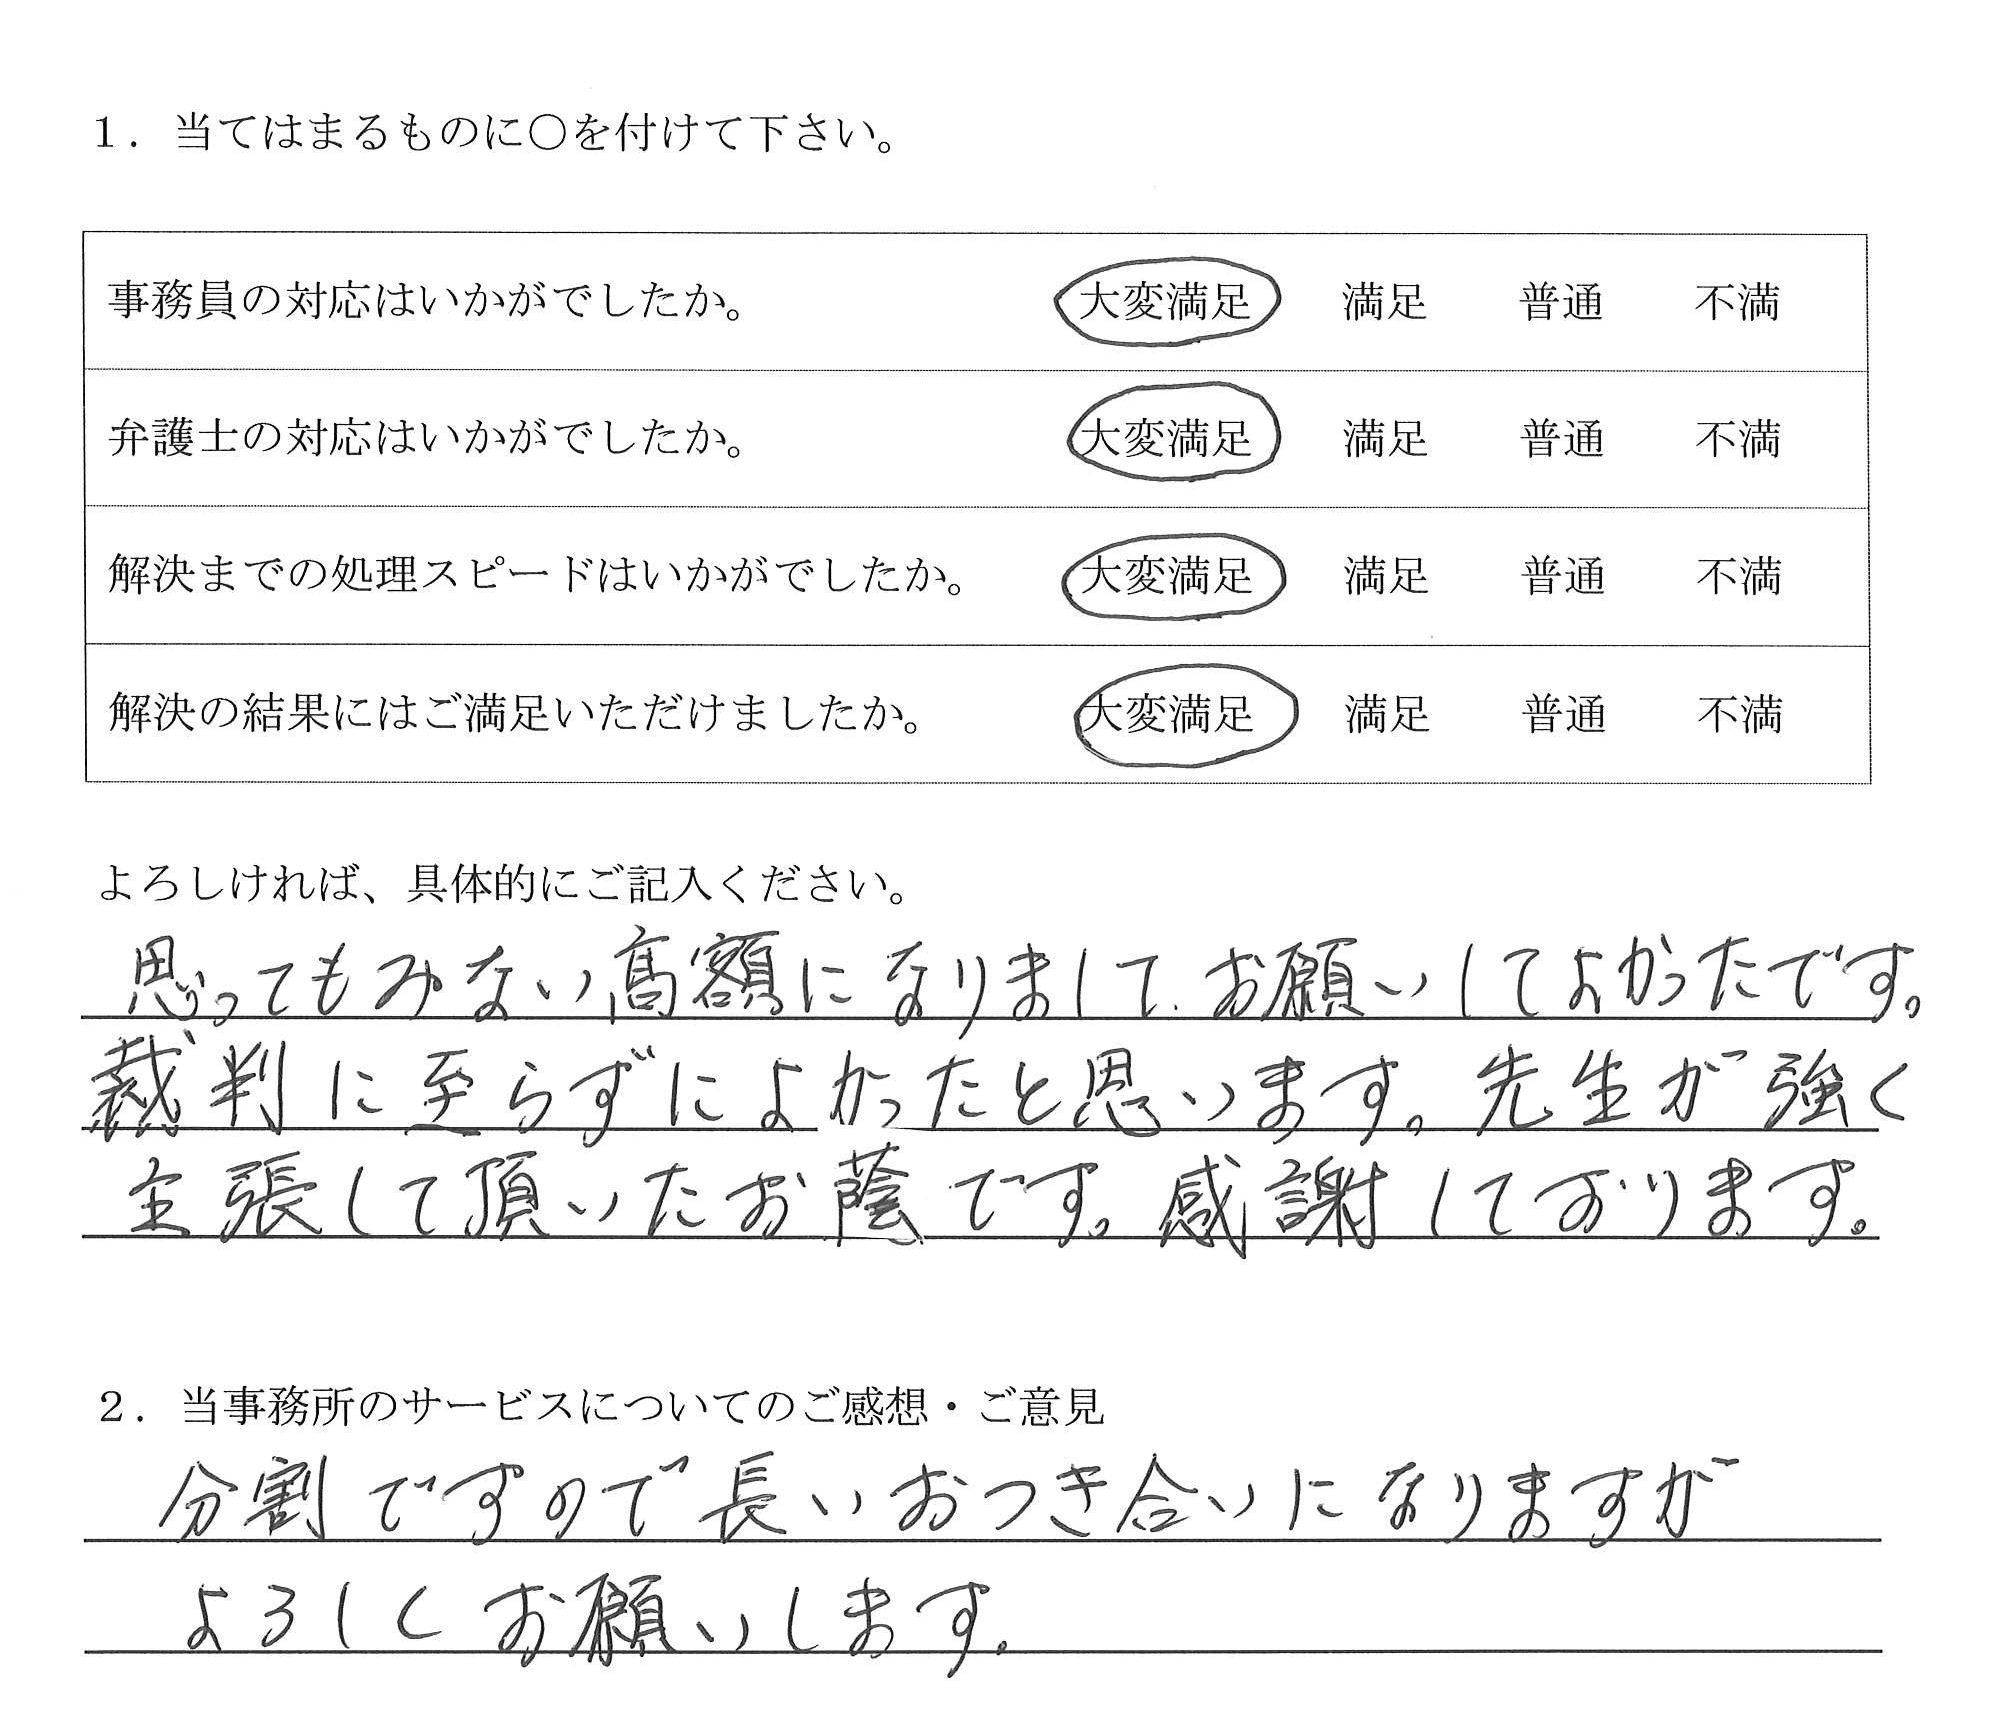 １．当てはまるものに〇を付けて下さい。
事務員の対応はいかがでしたか。 大変満足 満足 普通 不満
弁護士の対応はいかがでしたか。 大変満足 満足 普通 不満
解決までの処理スピードはいかがでしたか。 大変満足 満足 普通 不満
解決の結果にはご満足いただけましたか。 大変満足 満足 普通 不満
よろしければ、具体的にご記入ください。
思ってもみない高額になりまして、お願いしてよかったです。
裁判に至らずによかったと思います。先生が強く
主張して頂いたお蔭です。感謝しております。
２．当事務所のサービスについてのご感想・ご意見
分割ですので長いおつき合いになりますが
よろしくお願いします。